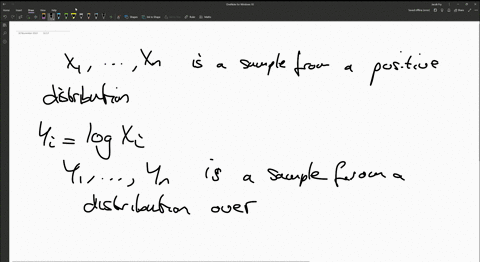 X1, ..., Xn is a sample from a positive
distribution
Yi = log Xi
Y1, ..., Yn is a sample from a
distribution over